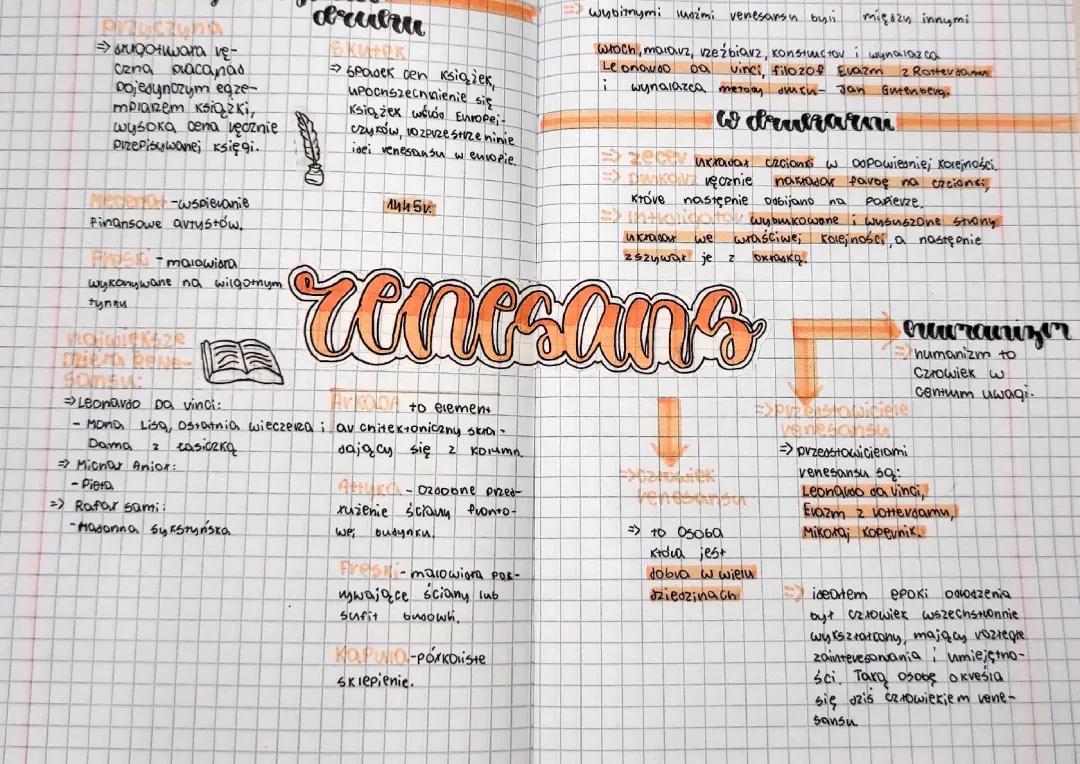 druku
przyczyna
⇒ długotwała rę-
czna praca nad
pojedynczym egze-
mplarzem książki,
wysoka cena ręcznie
przepisywanej księgi.
skutek
⇒ spadek cen książek,
upowszechnienie się
książek wśród Europej-
czyków, rozprzestrzeninie
idei renesansu w europie.
Mecenat -wspieranie
finansowe artystów.
1445r.
Freski - malowidła
wykonywane na wilgotnym
tynku
największe
dzieła Rene-
sansu:
⇒ Leonardo Da vinci:
- Mona Lisa, Ostatnia wieczerza i
Dama z łasiczką
⇒ Michał Anioł:
- Pieta
⇒ Rafał sami:
- Madonna sykstyńska
renesans
Arkada to element
architektoniczny skła-
dający się z kolumn.
Attyka - Ozdobne przed-
łużenie ściany fronto-
wej budynku.
Freski - malowidła pok-
rywające ściany lub
sufit budowli.
Kapuła -półkoliste
sklepienie.
⇒ wybitnymi ludźmi renesansu byli między innymi
włoch, malarz, rzeźbiarz, konstruktor i wynalazca
Leonardo Da Vinci, filozof Erazm z Rotterdamu
i wynalazca metody druku- Jan Gutenberg.
w drukarni
⇒ zecer układał czcionki w odpowiedniej kolejności.
⇒ Drukarz ręcznie nakładał farbę na czcionki,
które następnie odbijano na papierze.
⇒ Introligator wydrukowane i wysuszone strony
układał we właściwej kolejności, a następnie
zszywał je z okładką.
humanizm
⇒ humanizm to
człowiek w
centrum uwagi.
⇒ człowiek
renesansu
⇒ to osoba
która jest
dobra w wielu
dziedzinach
⇒ przedstawiciele
renesansu
⇒ przedstawicielami
renesansu są:
Leonardo da Vinci,
Erazm z rotterdamu,
Mikołaj Kopernik.
⇒ ideałem epoki odrodzenia
był człowiek wszechstronnie
wykształcony, mający rozległe
zainteresowania i umiejętno-
ści. Taką osobę określa
się dziś człowiekiem rene-
sansu